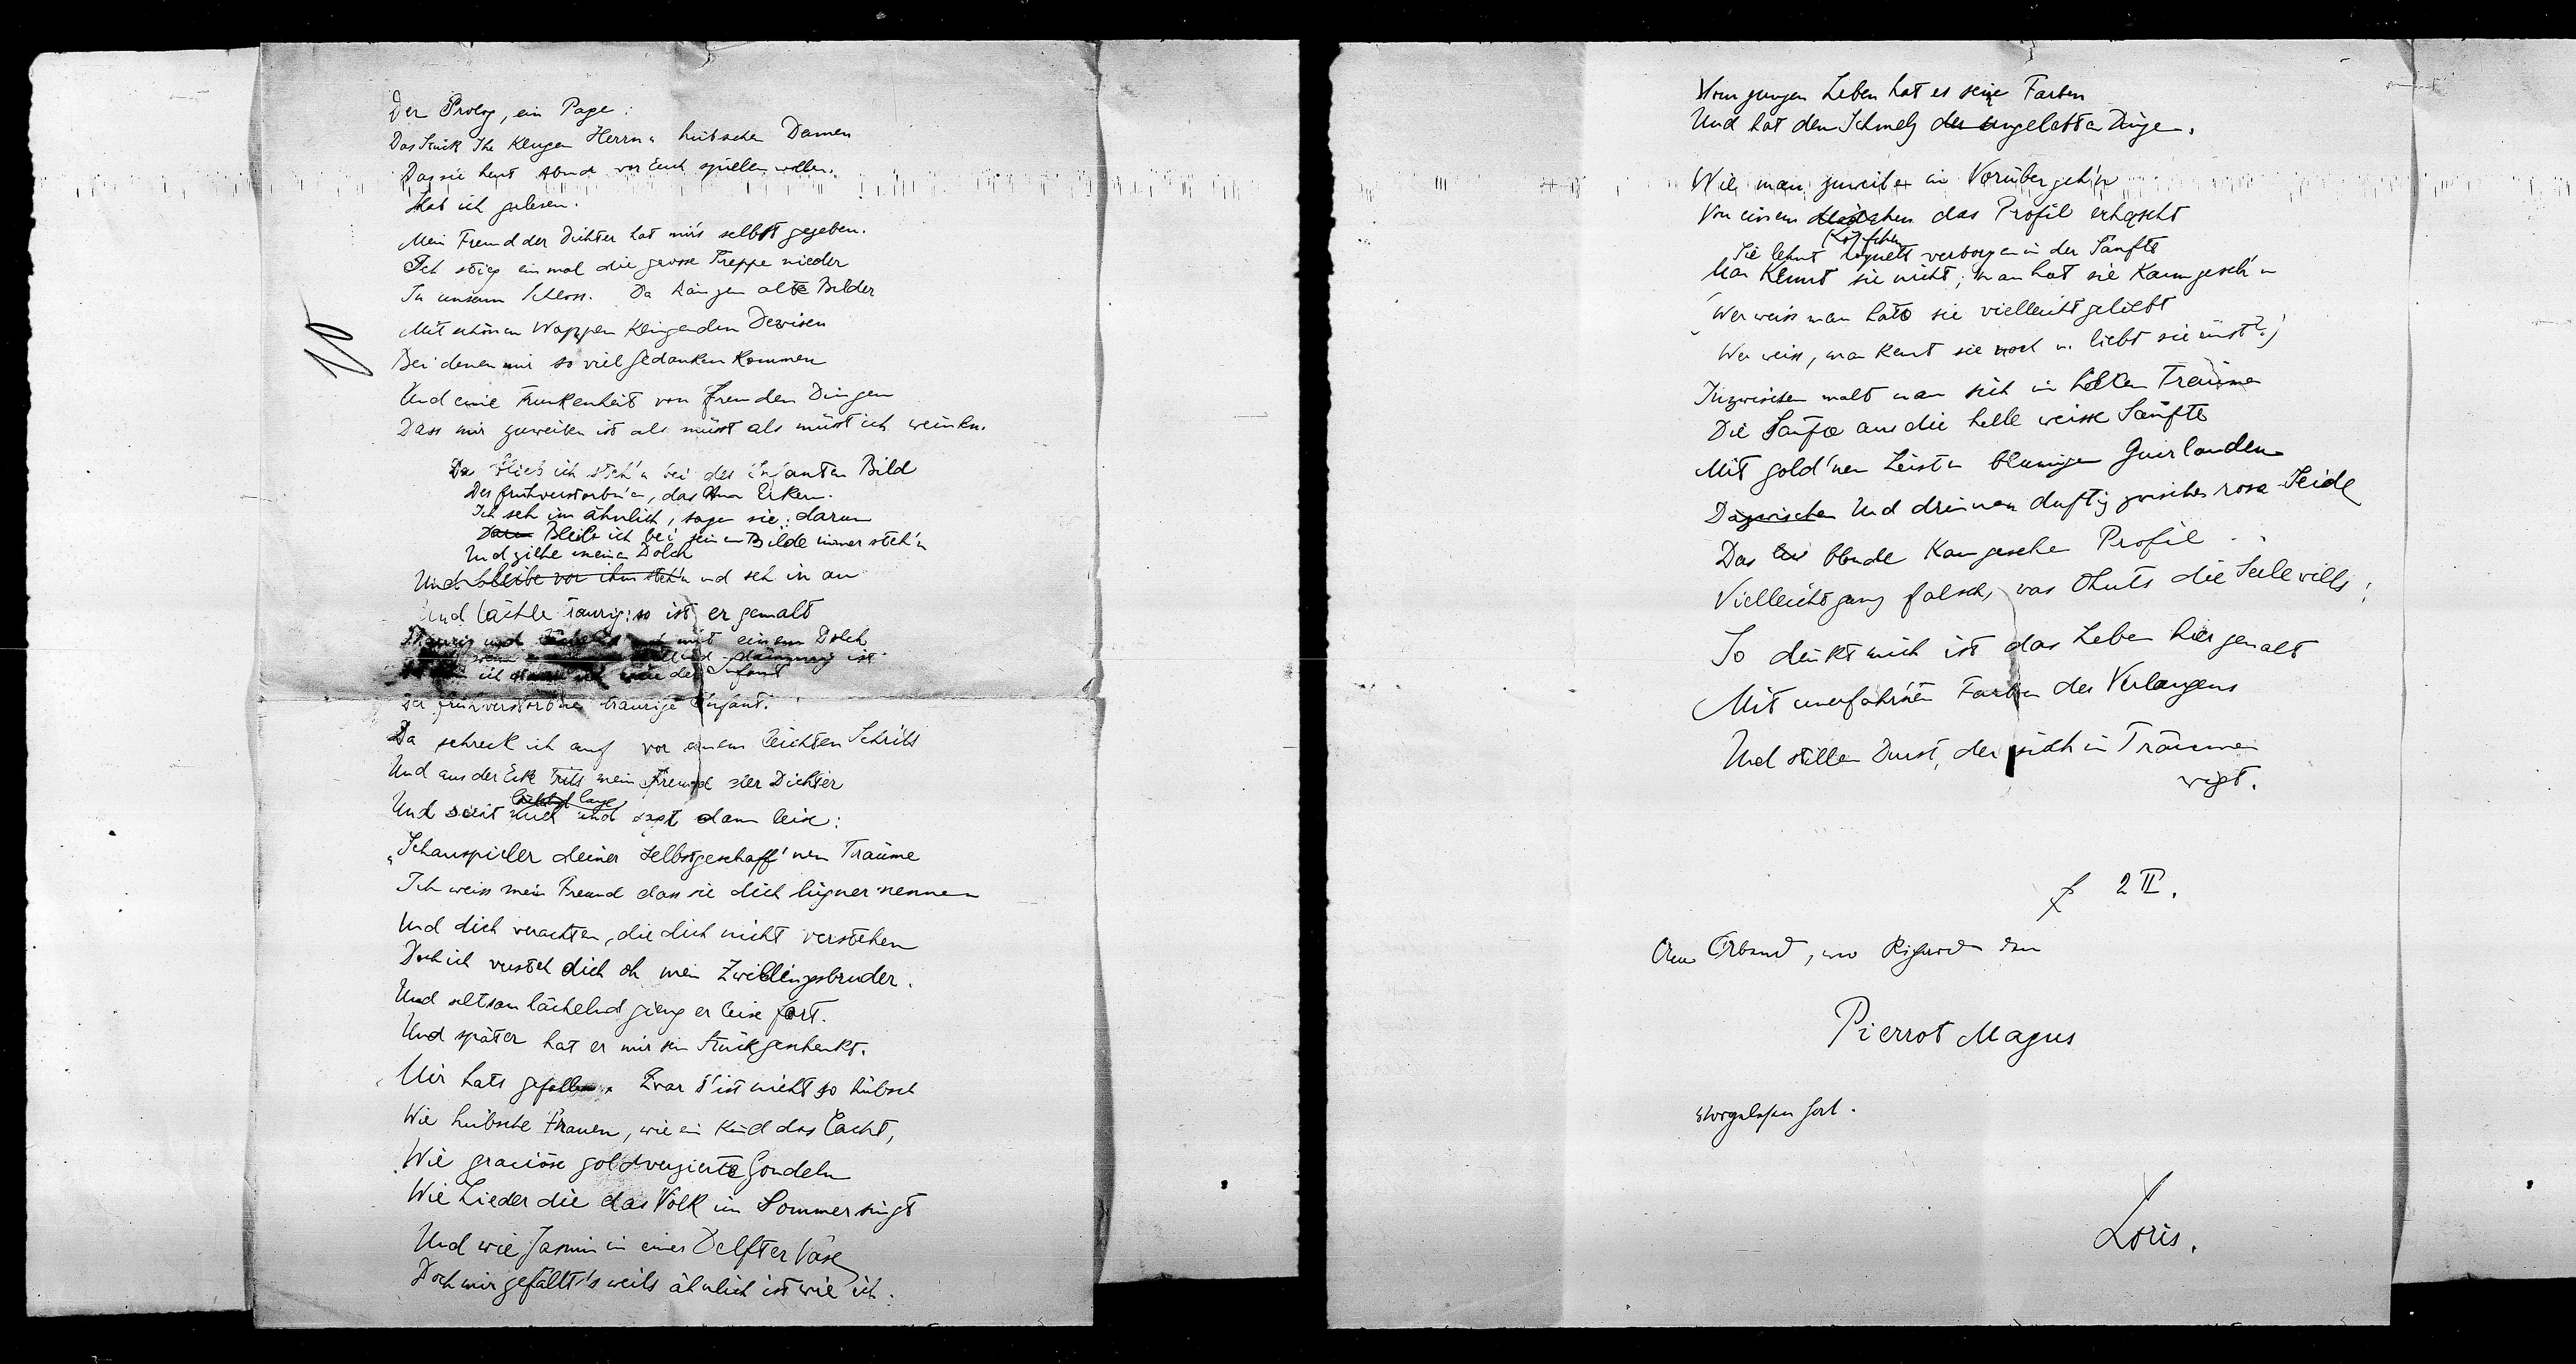 Der Prolog, ein Page:
Das Stück Ihr klugen Herrn u hübschen Damen
Das sie heut Abend vor Euch spielen wollen,
Hab ich gelesen.
Mein Freund der Dichter hat mirs selbst gegeben.
Ich stieg einmal die grosse Treppe nieder
In unserm Schloss. Da hängen alte Bilder
Mit schönen Wappen klingenden Devisen
Bei denen mir so viel Gedanken kommen
Und eine Trunkenheit von fremden Dingen
Dass mir zuweilen ist als müsst als müsst ich weinen.
Da blieb ich steh'n bei des Infanten Bild
Des frühverstorb'nen, das am Erker.
Ich seh im ähnlich, sagen sie; darum
Darum Bleib ich bei seinem Bilde immer steh'n
Und ziehe meinen Dolch
Und bleibe vor ihm steh'n und seh in an
Und lächle traurig: so ist er gemalt
Traurig und mit einem Dolch
Und dämmrig ist
ich der Infant
Der frühverstorb'ne traurige Infant.
Da schreck ich auf vor einem leichten Schritt
Und aus der Ecke tritt mein Freund der Dichter
lange
Und sieht mich und sagt dann leise:
„Schauspieler deiner selbstgeschaff'nen Träume
Ich weiss mein Freund dass sie dich lügner nennen
Und dich verachten, die dich nicht verstehen
Doch ich versteh dich oh mein Zwillingsbruder.
Und seltsam lächelnd gieng er leise fort.
Und später hat er mir sein Stück geschenkt.
Mir hats gefallen. Zwar s'ist nicht so hübsch
Wie hübsche Frauen, wie ein Kind das lacht,
Wie graciöse goldverzierte Gondeln
Wie Lieder die das Volk im Sommer singt
Und wie Jasmin in einer Delfter Vase
Doch mir gefällt's weils ähnlich ist wie ich.
Vom jungen Leben hat es seine Farben
Und hat den Schmelz der ungelebten Dinge.
Wie man zuweilen im Vorübergeh'n
Von einem Mädchen das Profil erhascht
Köpfchen
Sie lehnt coquett verborgen in der Sänfte
Man kennt sie nicht; man hat sie kaum geseh'n
(Wer weiss man hätte sie vielleicht geliebt
Wer weiss, man kennt sie noch u. liebt sie einst?)
Inzwischen malt man sich in hellen Träumen
Die Sänfte aus die helle weisse Sänfte
Mit gold'nen Leisten blumigen Guirlanden
Dazwischen Und drinnen duftig zwischen rosa Seide
Das blonde kaum gesehen Profil
Vielleicht ganz falsch, was thuts die Seele wills;
So dünkt mich ist das Leben hier gemalt
Mit unerfahr'nen Farben des Verlangens
Und stillem Durst, der sich in Träumen
wiegt.
2 II.
Am Abend, wo Richard den
Pierrot Magus
vorgelesen hat.
Loris.